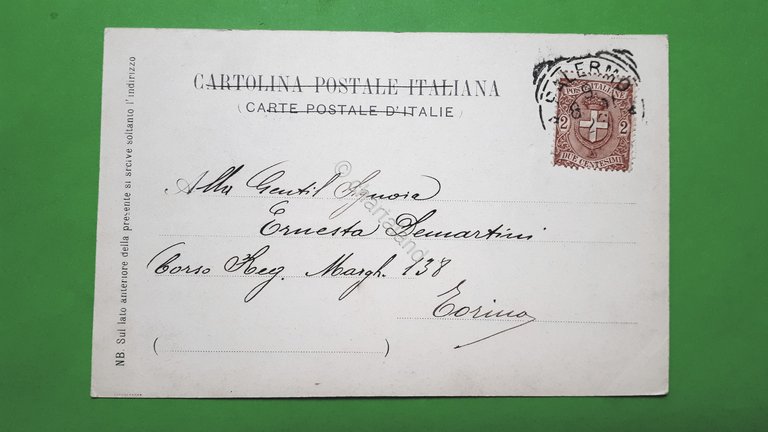 CARTOLINA POSTALE ITALIANA
(CARTE POSTALE D'ITALIE)
SALERMO
POSTE ITALIANE
2 2
DUE CENTESIMI
Alla Gentil Signora
Ernesta Demartini
Corso Reg. Margh. 138
Torino
( )
NB. Sul lato anteriore della presente si srcive soltanto l'indirizzo
© Cartaland